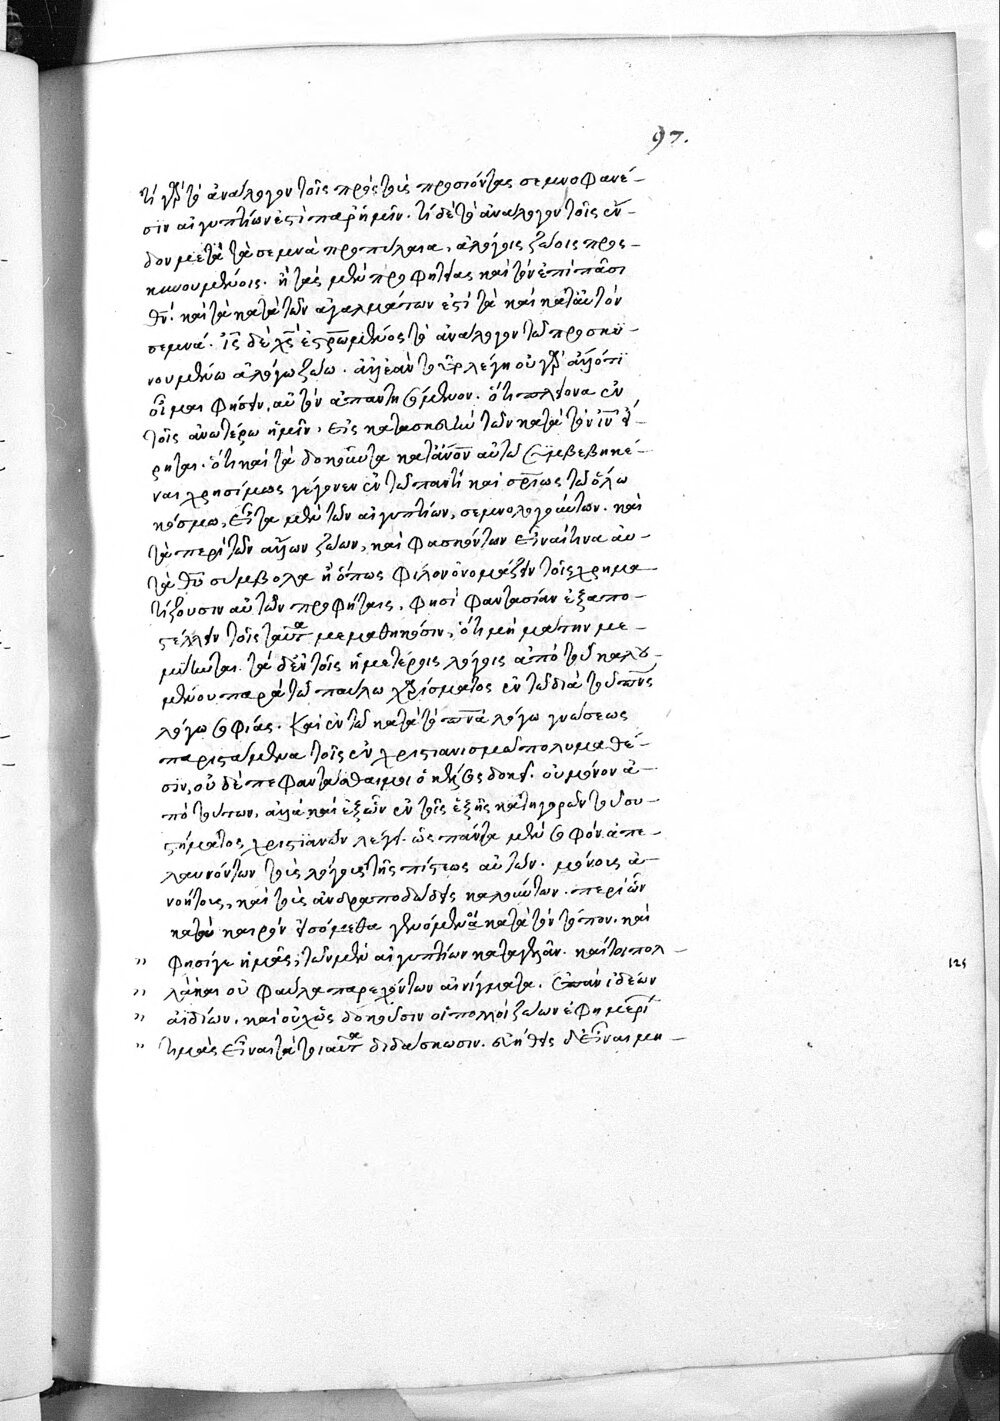 97.
τί γὰρ τὸ ἀνάλογον τοῖς πρὸς τοὺς προσιόντας σεμνοφανέ-
σιν αἰγυπτίων ἐστὶ παρ' ἡμῖν. τί δὲ τὸ ἀνάλογον τοῖς ἔν-
δον μετὰ τὰ σεμνὰ προπύλαια, ἀλόγοις ζώοις προσ-
κυνουμένοις. ἢ τὰς μὲν προφητείας καὶ τὸν ἐπὶ πᾶσι
θν̄. καὶ τὰ κατὰ τῶν ἀγαλμάτων ἐστὶ τὰ καὶ κατ' αὐτὸν
σεμνά. ἰς̄ δὲ χς̄ ἐστρωμένος τὸ ἀνάλογον τῶ προσκυ-
νουμένω ἀλόγω ζώω. ἀλλ' ἐὰν τοῦτο λέγη οὐ γὰρ ἄλλό τι
οἶμαι φήσειν, αὐτὸν ἀπαντησόμενον. ὅτι πλείονα ἐν
τοῖς ἀνωτέρω ἡμῖν, εἰς κατασκευὴν τῶν κατὰ τὸν ιν̄ εἴ-
ρηται. ὅτι καὶ τὰ δοκοῦντα κατ' ἄνον̄ αὐτῶ συμβεβηκέ-
ναι χρησίμως γέγονεν ἐν τῶ παντὶ καὶ σρ̄ίως τῶ ὅλω
κόσμω, εἶτα μὲν τῶν αἰγυπτίων, σεμνολογούντων. καὶ
τὰ περὶ τῶν ἀλόγων ζώων, καὶ φασκόντων εἶναί τινα αὐ-
τὰ θῦ σύμβολα ἢ ὅπως φίλον ὀνομάζειν τοῖς χρημα-
τίζουσιν αὐτῶν προφήταις, φησὶ φαντασίαν ἐξαπο-
στέλλειν τοῖς ταῦτα μεμαθηκόσιν, ὅτι μὴ μάτην με-
μύηνται. τὰ δ' ἐν τοῖς ἡμετέροις λόγοις ἀπὸ τοῦ καλου-
μένου παρὰ τῶ παύλω χαρίσματος ἐν τῶ διὰ τοῦ πνς̄
λόγω σοφίας. καὶ ἐν τῶ κατὰ τὸ πνᾱ λόγω γνώσεως
παριστάμενα τοῖς ἐν χριστιανισμῶ πολυμαθέ-
σιν, οὐδὲ πεφαντάσθαι μοι ὁ κέλσος δοκεῖ. οὐ μόνον ἀ-
πὸ τούτων, ἀλλὰ καὶ ἐξ ὧν ἐν τοῖς ἑξῆς κατηγορῶν τοῦ συ-
στήματος χριστιανῶν λέγει. ὡς πάντα μὲν σοφὸν ἀπε-
λαυνόντων τοὺς λόγους τῆς πίστεως αὐτῶν. μόνους ἀ-
νοήτους, καὶ τοὺς ἀνδραποδώδεις καλούντων. περὶ ὧν
κατὰ καιρὸν εἰσόμεθα γενόμενοι κατὰ τὸν τόπον. καὶ
" φησί γε ἡμᾶς, τῶν μὲν αἰγυπτίων καταγελᾶν. καίτοι πολ-
" λὰ καὶ οὐ φαῦλα παρεχόντων αἰνίγματα. ἐπὰν ἰδεῶν
" ἀϊδίων, καὶ οὐχ ὡς δοκοῦσιν οἱ πολλοὶ ζώων ἐφημερί
" τιμὰς εἶναι τὰ τοιαῦτα διδάσκωσιν. εὐήθεις δ' εἶναι μη-
125